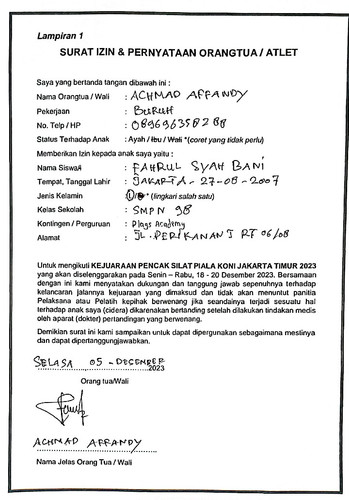 Lampiran 1
SURAT IZIN & PERNYATAAN ORANGTUA / ATLET
Saya yang bertanda tangan dibawah ini :
Nama Orangtua / Wali : ACHMAD AFFANDY
Pekerjaan : BURUH
No. Telp / HP : 089696358288
Status Terhadap Anak : Ayah / Ibu / Wali *(coret yang tidak perlu)
Memberikan Izin kepada anak saya yaitu :
Nama Siswa/i : FAHRUL SYAH BANI
Tempat, Tanggal Lahir : JAKARTA - 27-08-2007
Jenis Kelamin : L/P* (lingkari salah satu)
Kelas Sekolah : SMPN 98
Kontingen / Perguruan : Plags Academy
Alamat : JL. PERIKANAN I RT 06/08
Untuk mengikuti KEJUARAAN PENCAK SILAT PIALA KONI JAKARTA TIMUR 2023
yang akan diselenggarakan pada Senin – Rabu, 18 - 20 Desember 2023. Bersamaan
dengan ini kami menyatakan dukungan dan tanggung jawab sepenuhnya terhadap
kelancaran jalannya kejuaraan yang dimaksud dan tidak akan menuntut panitia
Pelaksana atau Pelatih kepihak berwenang jika seandainya terjadi sesuatu hal
terhadap anak saya (cidera) dikarenakan bertanding setelah dilakukan tindakan medis
oleh aparat (dokter) pertandingan yang berwenang.
Demikian surat ini kami sampaikan untuk dapat dipergunakan sebagaimana mestinya
dan dapat dipertanggungjawabkan.
SELASA 05 - DESEMBER 2023
Orang tua/Wali
ACHMAD AFFANDY
Nama Jelas Orang Tua / Wali